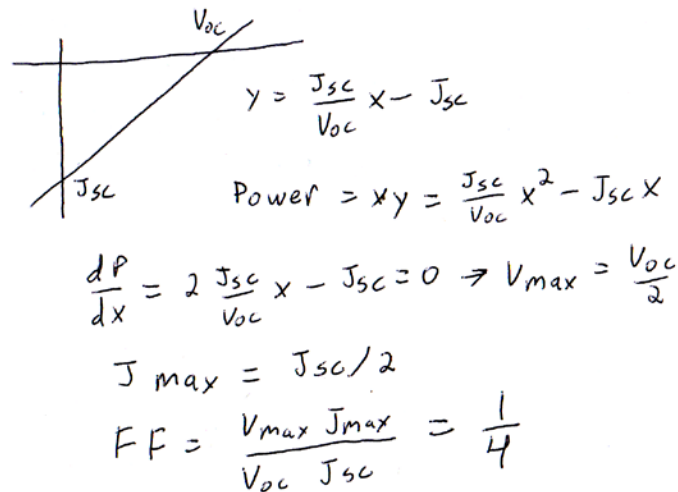 Voc
Jsc
y = Jsc/Voc x - Jsc
Power = xy = Jsc/Voc x² - Jsc x
dP/dx = 2 Jsc/Voc x - Jsc = 0 → Vmax = Voc/2
Jmax = Jsc/2
FF = Vmax Jmax / Voc Jsc = 1/4